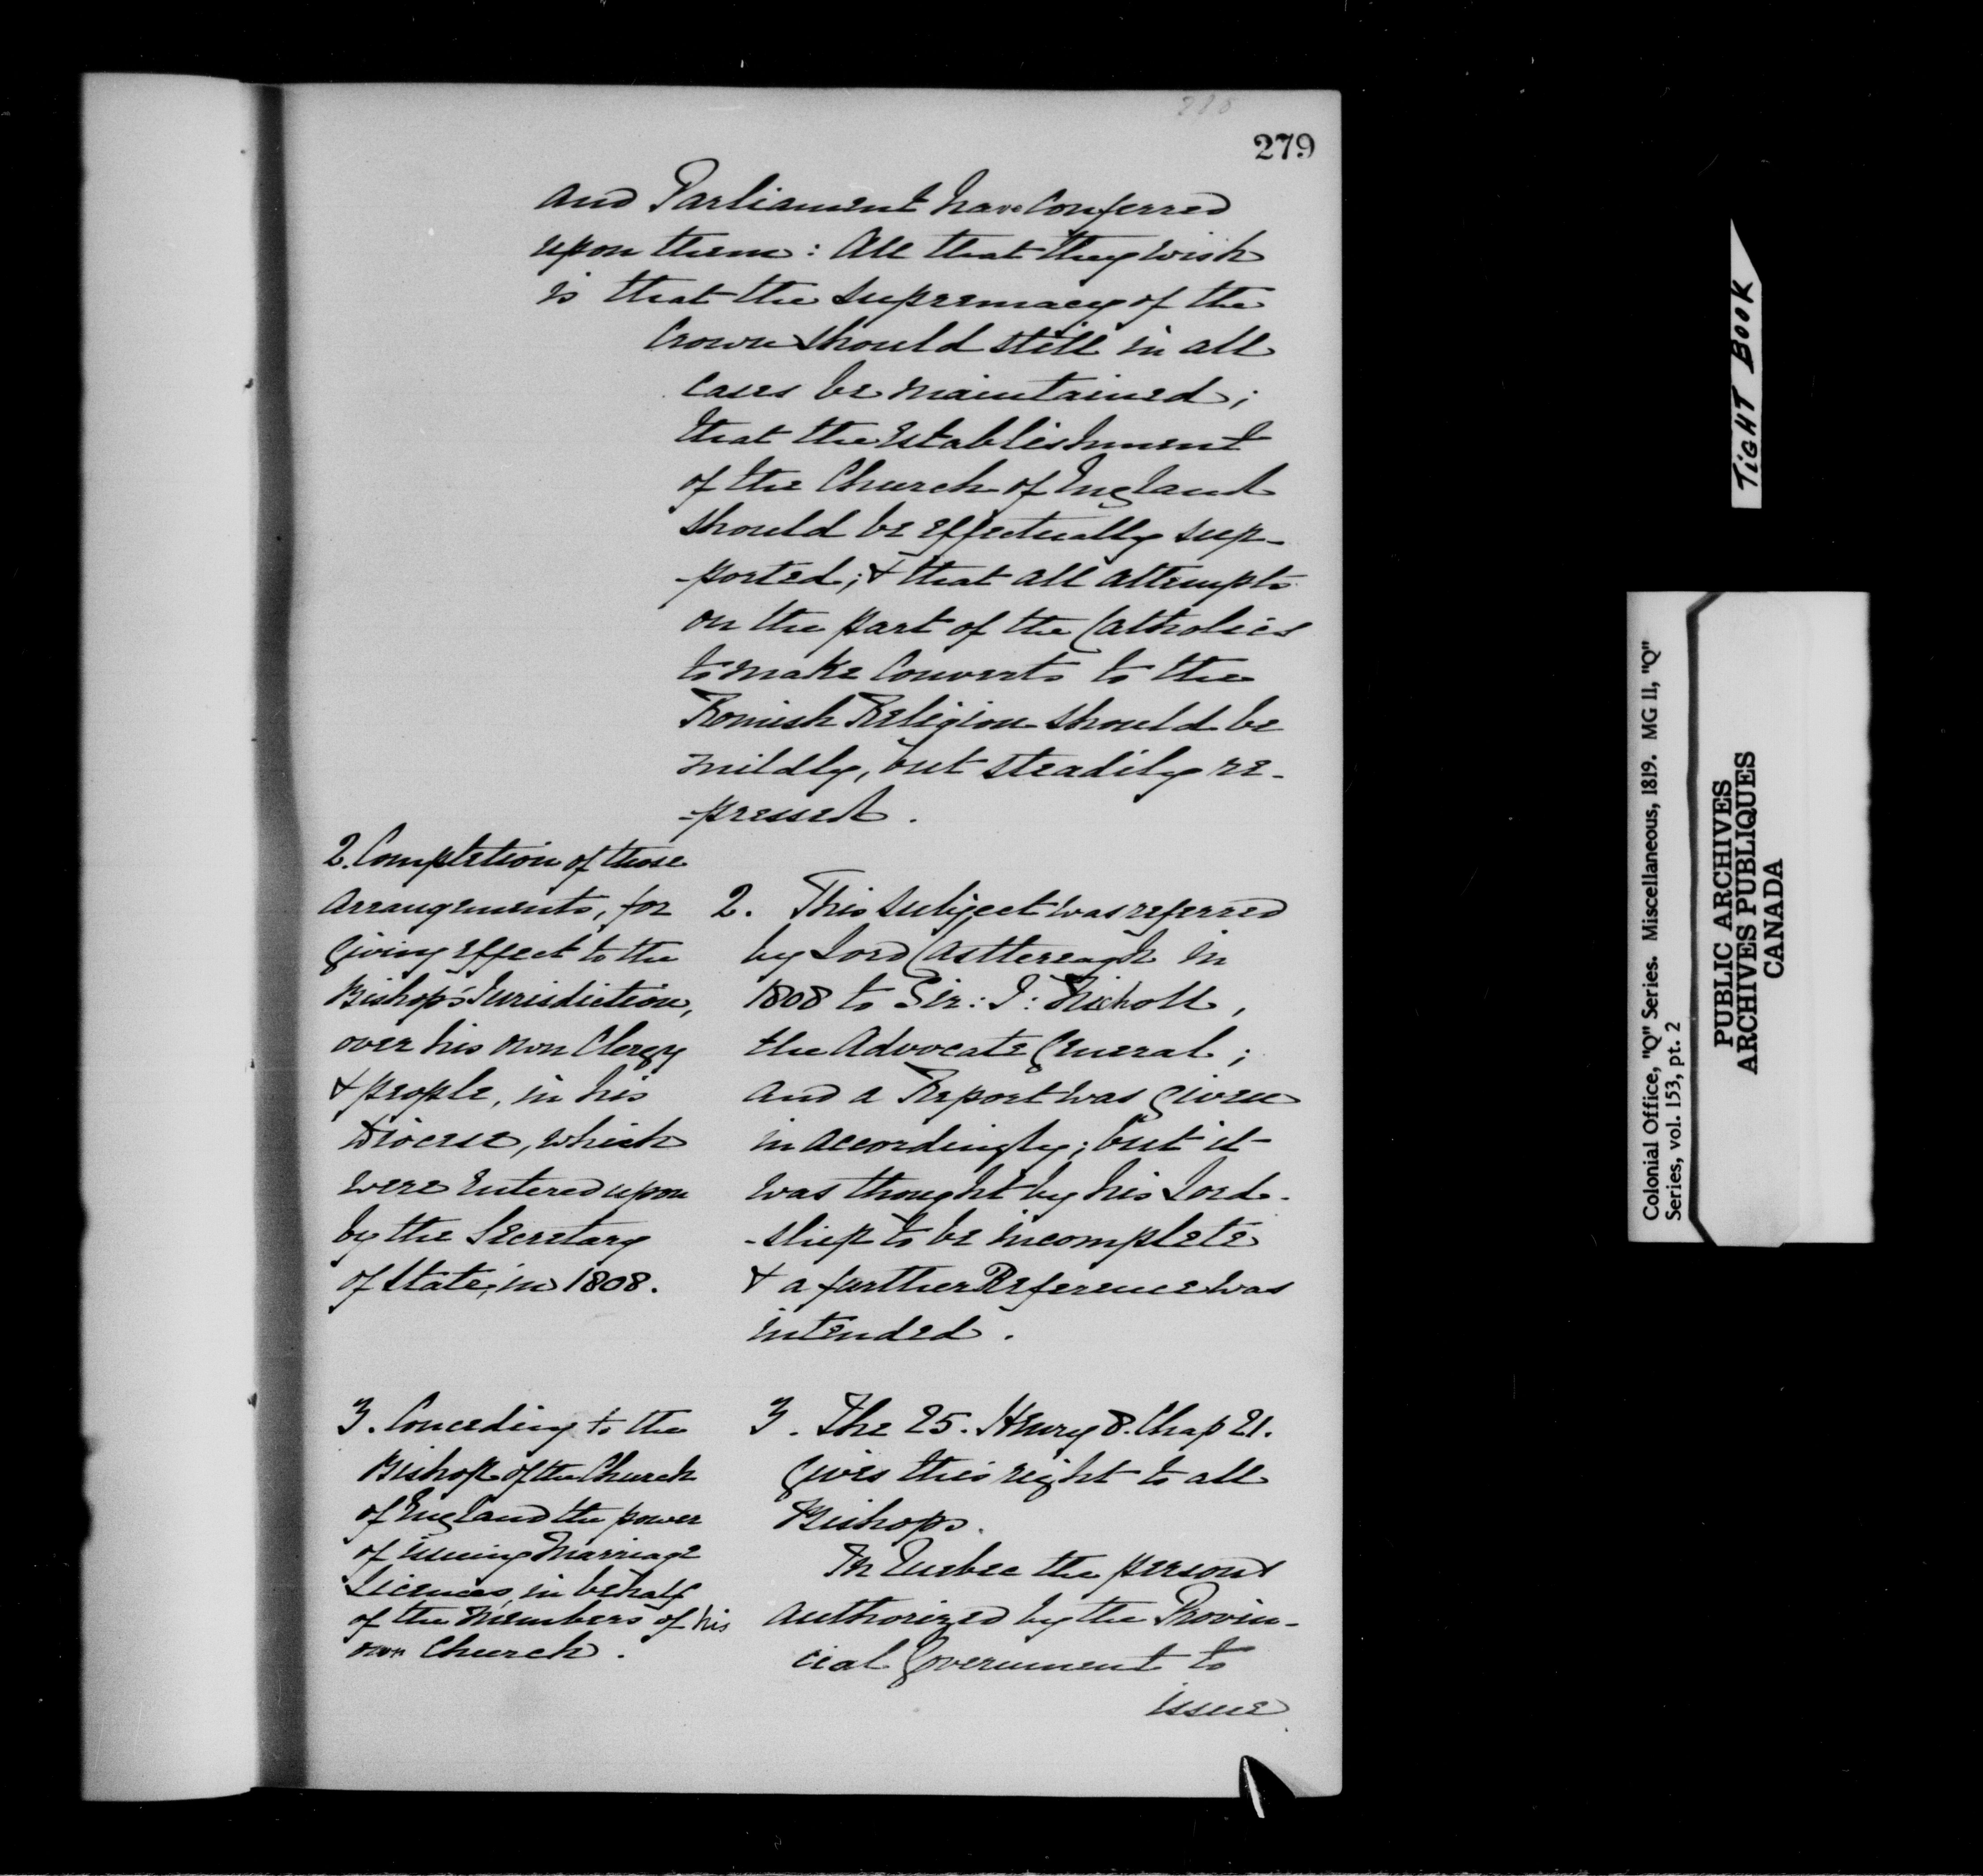 279
and Parliament have conferred
upon them: All that they wish
is that the supremacy of the
Crown should still in all
cases be maintained;
that the Establishment
of the Church of England
should be effectually sup-
-ported; & that all attempts
on the part of the Catholics
to make Converts to the
Romish Religion should be
mildly, but steadily re-
-pressed.
2. Completion of those
arrangements, for
giving effect to the
Bishop's Jurisdiction,
over his own Clergy
& people, in his
Diocese, which
were entered upon
by the Secretary
of State, in 1808.
2. This subject was referred
by Lord Castlereagh in
1808 to Sir: J: Nicholl,
the Advocate General;
and a Report was given
in accordingly; but it
was thought by his Lord-
-ship to be incomplete
& a further Reference was
intended.
3. Conceding to the
Bishop of the Church
of England the power
of issuing Marriage
Licences, in behalf
of the Members of his
own Church.
3. The 25. Henry 8. Chap 21.
gives this right to all
Bishops.
In Quebec the person
authorized by the Provin-
cial Government to
issue
TIGHT BOOK
Colonial Office, "Q" Series. Miscellaneous, 1819. MG 11, "Q"
Series, vol. 153, pt. 2
PUBLIC ARCHIVES
ARCHIVES PUBLIQUES
CANADA